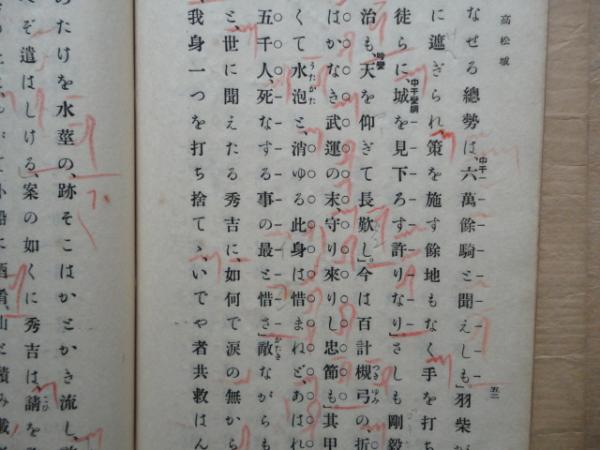 高松城
五二
なせる總勢は、六萬餘騎と聞えしも」羽柴
中干一
に遮ぎられ、策を施す餘地もなく手を打ち
徒らに、城を見下ろす許りなり」さしも剛毅
中干
治も、天を仰ぎて長歎し。」今は百計槻弓の、折
吟變
つきゆみ
はかなき武運の末、守り來りし忠節も」其甲
くて水泡と、消ゆる此身は惜まねど、あはれ
うたかた
五千人、死なする事の最と惜さ」敵ながらも
かたき
と、世に聞えたる秀吉に、如何で涙の無から
我身一つを打ち捨てゝ、いでや者共救はん
のたけを水莖の、跡そこはかとかき流し、
ぞ遣はしける、案の如くに秀吉は、請を
こひ
小船に酒肴、山と積み載